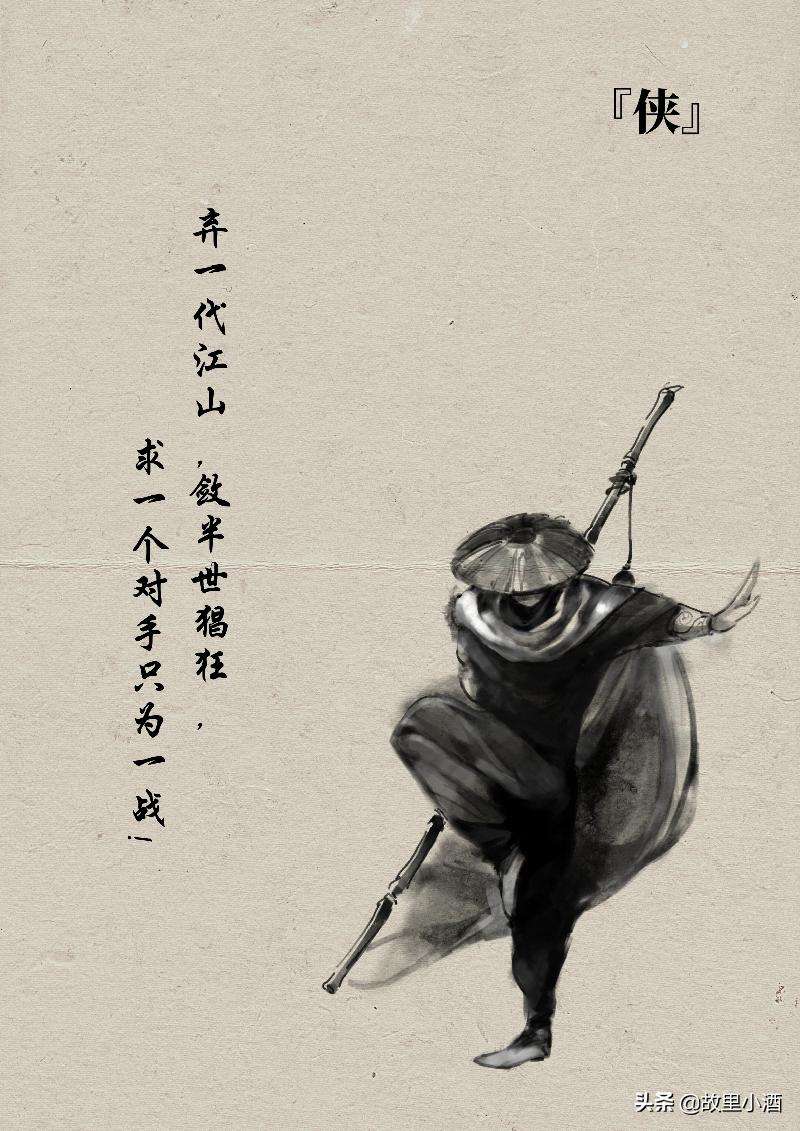 『侠』
弃一代江山，敛半世猖狂，
求一个对手只为一战！
头条 @故里小酒